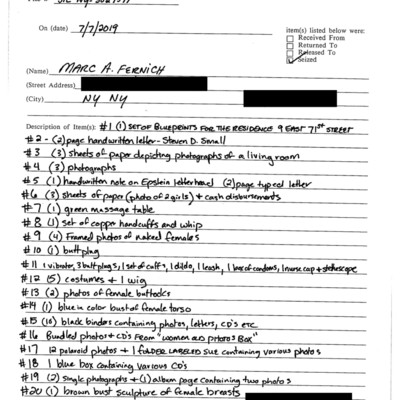 On (date) 7/7/2019
item(s) listed below were:
Received From
Returned To
Released To
Seized
(Name) MARC A. FERNICH
(Street Address)
(City) NY NY
Description of Item(s): #1 (1) SET OF BLUEPRINTS FOR THE RESIDENCE 9 EAST 71ST STREET
#2 - (2) page handwritten letter - Steven D. Small
#3 (3) sheets of paper depicting photographs of a living room
#4 (3) photographs
#5 (1) handwritten note on Epstein letterhead (2) page typed letter
#6 (3) sheets of paper (photo of 2 girls) + cash disbursements
#7 (1) green massage table
#8 (1) set of copper handcuffs and whip
#9 (4) Framed photos of naked females
#10 (1) buttplug
#11 1 vibrator, 3 buttplugs, 1 set of cuffs, 1 dildo, 1 leash, 1 box of condoms, 1 nurse cap + stethoscope
#12 (5) costumes + 1 wig
#13 (2) photos of female buttocks
#14 (1) blue in color bust of female torso
#15 (10) black binders containing photos, letters, CD's etc
#16 Bundled photos + CD's From "women AND photos Box"
#17 12 polaroid photos + 1 FOLDER LABELED SUE containing various photos
#18 1 blue box containing various CD's
#19 (2) single photographs + (1) album page containing two photos
#20 (1) brown bust sculpture of female breasts